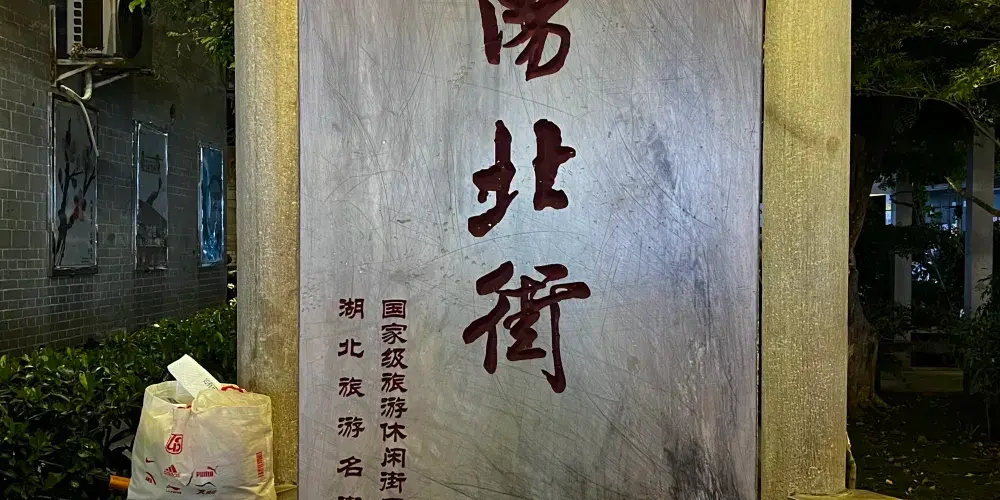 陽北街
国家级旅游休闲街
湖北旅游名
adidas
PUMA